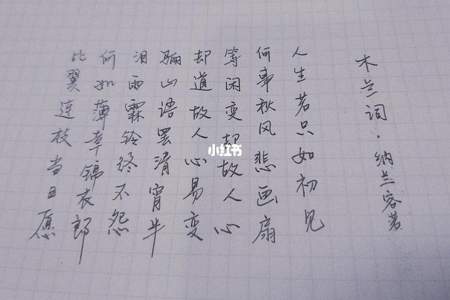 木兰词·纳兰容若
人生若只如初见
何事秋风悲画扇
等闲变却故人心
却道故人心易变
骊山语罢清宵半
泪雨霖铃终不怨
何如薄幸锦衣郎
比翼连枝当日愿
小红书